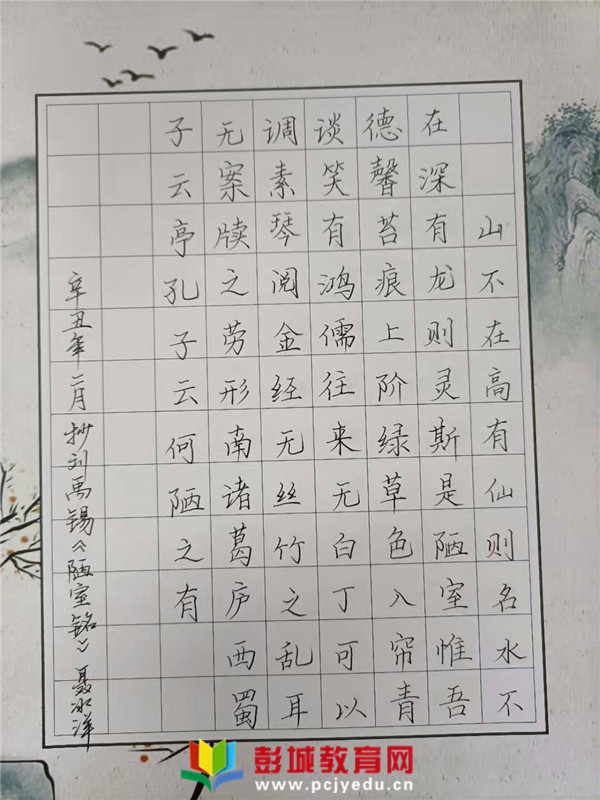 山不在高有仙则名水不
在深有龙则灵斯是陋室惟吾
德馨苔痕上阶绿草色入帘青
谈笑有鸿儒往来无白丁可以
调素琴阅金经无丝竹之乱耳
无案牍之劳形南诸葛庐西蜀
子云亭孔子云何陋之有
辛丑年二月 抄刘禹锡《陋室铭》 聂冰洋
彭城教育网
www.pcjyedu.cn